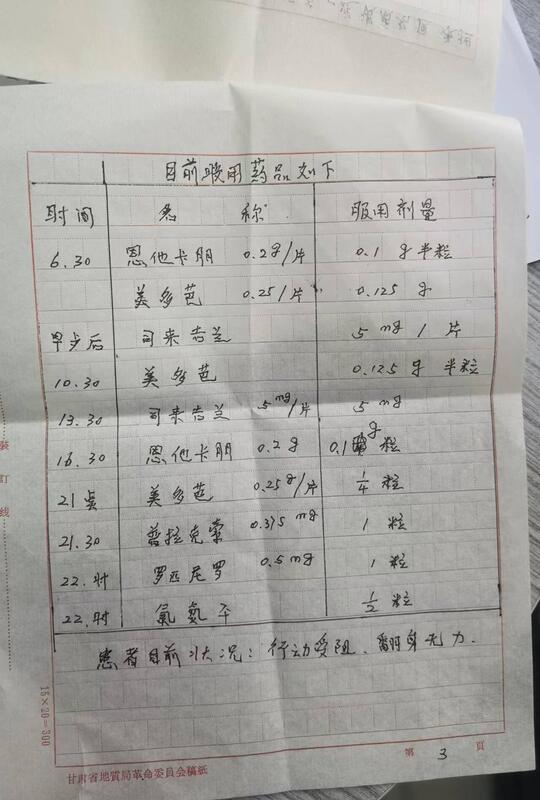 目前服用药品如下
时间 名 称 服用剂量
6.30 恩他卡朋 0.2g/片 0.1 g 半粒
美多芭 0.25/片 0.125 g
早步后 司来吉兰 5 mg 1 片
10.30 美多芭 0.125 g 半粒
13.30 司来吉兰 5 mg/片 5 mg
16.30 恩他卡朋 0.2 g 0.1 g 粒
21点 美多芭 0.25g/片 1/4 粒
21.30 普拉克索 0.375 mg 1 粒
22.时 罗匹尼罗 0.5 mg 1 粒
22.时 氯氮平 1/2 粒
患者目前状况: 行动受阻、翻身无力.
装
订
线
15×20=300
第 3 頁
甘肃省地質局革命委員会稿紙